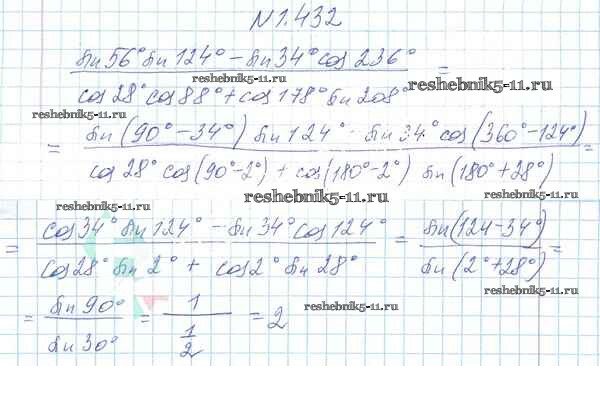 N 1.432
sin 56° sin 124° − sin 34° cos 236° =
reshebnik5-11.ru
cos 28° cos 88° + cos 178° sin 208°
reshebnik5-11.ru
= sin(90° − 34°) sin 124° - sin 34° cos(360° − 124°) =
cos 28° cos(90° − 2°) + cos(180° − 2°) sin(180° + 28°)
reshebnik5-11.ru
reshebnik5-11.ru
reshebnik5-11.ru
= cos 34° sin 124° − sin 34° cos 124° = sin(124 − 34°) =
cos 28° sin 2° + cos 2° sin 28° sin(2° + 28°)
reshebnik5-11.ru
= sin 90° = 1 = 2
reshebnik5-11.ru
sin 30° 1/2